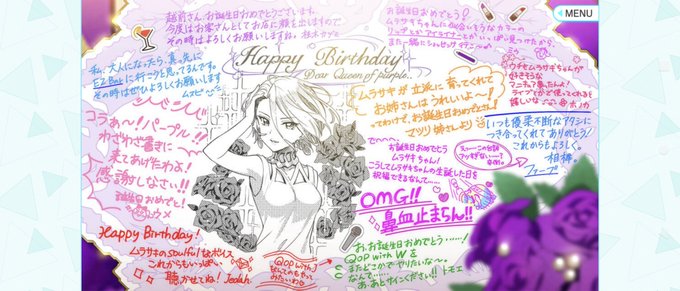 MENU
越前さん、お誕生日おめでとうございます。
今度はお客さんとしてお店に顔を出しますので
その時はよろしくお願いしますね。
お誕生日おめでとう!
ムラサキちゃんに似合いそうなカラーの
リップとかアイライナーとかいっぱい見つけたから、
また一緒にショッピング行こ〜
Happy Birthday
Dear Queen of purple..
私、大人になったら、真っ先に
EZ Barに行こうと思ってるんです。
その時はぜひよろしくお願いします
ムラサキが立派に育ってくれて
お姉さんはうれしいよ〜!
ってわけで、お誕生日おめでとさん!
マツリ姉さんより
ウチもムラサキちゃんが
好きそうな
マニキュア選んだよ!
ライブとかで使ってくれると
嬉しいな
ホノカ
コラぁ〜!!パープル!!
わざわざ書きに
来てあげたわよ!
感謝しなさい!!
誕生日おめでと!
いつも優柔不断なアタシに
つき合ってくれてありがとう!
これからもよろしく。
相棒。
お誕生日おめでとう
ムラサキちゃん!
こうしてムラサキちゃんの生誕した日を
祝福できるなんて……
OMG!!
鼻血止まらん!!
Happy Birthday!
ムラサキのSoulfulなボイス
これからもいっぱい
聴かせてね! Jedah.
QOP with J
お、お誕生日おめでとう……!
QOP with W を
またどこかでやりたいな〜。
なんて……
あ、あとサインください!! トモエ